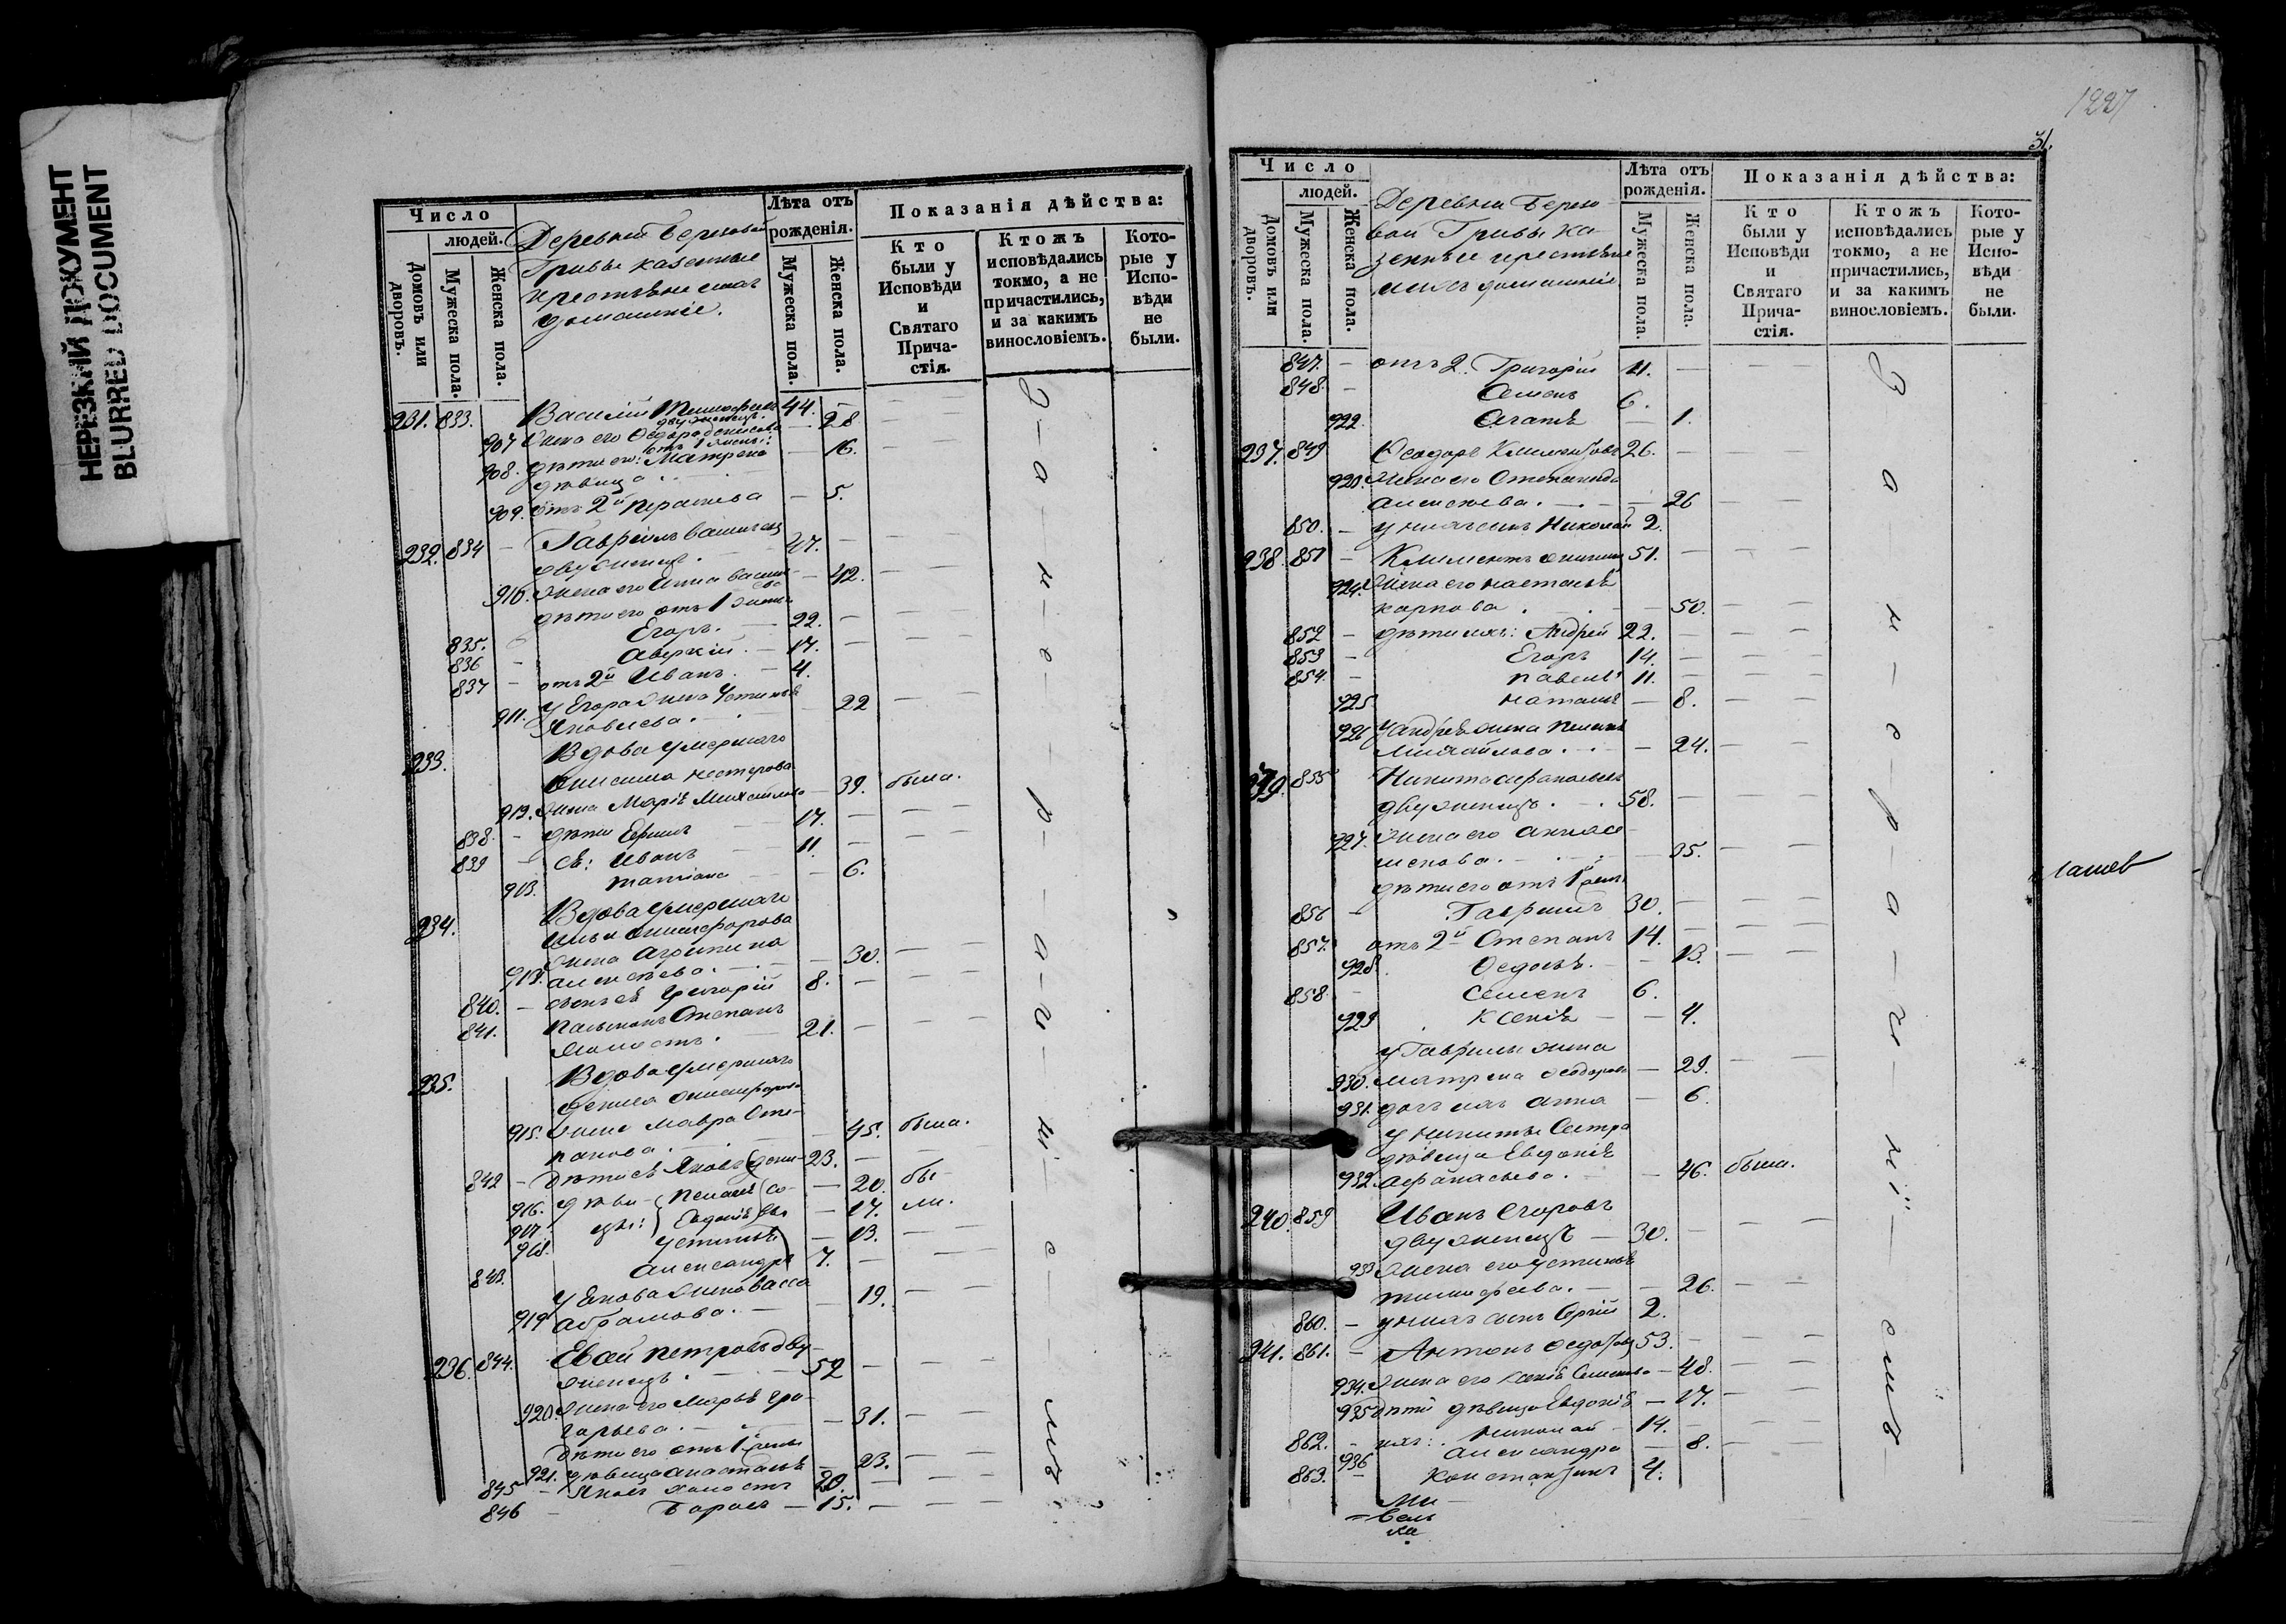 НЕРЕЗКИЙ ДОКУМЕНТ
BLURRED DOCUMENT
Число
людей.
Домовъ или дворовъ.
Мужеска пола.
Женска пола.
Деревни Березовой
Гривы казенные
крестьяне
домашніе.
Лѣта отъ рожденія.
Мужеска пола.
Женска пола.
Показанія дѣйства:
Кто были у Исповѣди и Святаго Причастія.
Ктожъ исповѣдались токмо, а не причастились, и за какимъ винословіемъ.
Которые у Исповѣди не были.
231. 833. Василій 44.
двуженецъ.
907 жена его 28
908. дѣти его: отъ 1 Матрена 16.
дѣвица
909. отъ 2й 5.
232. 834 – Гавріилъ
двуженецъ. 47.
910. жена его Анна 42.
дѣти его отъ 1 жены
835. Егоръ. 22.
836 – Аверкій. 17.
837 – отъ 2й Иванъ. 4.
911. у Егора жена Устинья 22
Яковлева.
233. Вдова умершаго
Анисима Нестерова
912. жена Марія Михайлова 39. была.
838. – дѣти 17.
839 – Иванъ 11.
913. Татіана 6.
234. Вдова умершаго
Ильи Онисифорова
жена Агрипина
914. Алексѣева. 30.
840. – сынъ ея Григорій 8.
841. Степанъ
холостъ. 21.
235. Вдова умершаго
Дениса Онисифорова
915. жена Мавра Сте-
панова. 45. была.
842 – дѣти ея Яковъ 23.
916. дѣви- Пелагея 20. бы-
917. цы: Евдокія 17. ли.
918. Устинья 13.
843. Александръ 7.
у Якова жена Васса
919 Абрамова. 19.
236. 844. Евсей Петровъ дву-
женецъ. 52
920. жена его Марья Гри-
горьева. 31.
дѣти его отъ 1 жены
921. дѣвица Анастасія 23.
845 – Яковъ холостъ 20.
846 – Борисъ – 15.
1227
31.
Число
людей.
Домовъ или дворовъ.
Мужеска пола.
Женска пола.
Деревни Березо-
вой Гривы ка-
зенные крестьяне
домашніе
Лѣта отъ рожденія.
Мужеска пола.
Женска пола.
Показанія дѣйства:
Кто были у Исповѣди и Святаго Причастія.
Ктожъ исповѣдались токмо, а не причастились, и за какимъ винословіемъ.
Которые у Исповѣди не были.
847. – отъ 2. Григорій 11.
848. – Семенъ 6.
922. Агаѳія – 1.
237. 849 Ѳеодоръ Климентовъ 26.
923. жена его Степанида
Алексѣева. 26
850. – у нихъ сынъ Николай 2.
238. 851 – Климентъ 51.
924. жена его Настасья
Карпова. 50.
852 – дѣти ихъ: Андрей 22.
853 – Егоръ 14.
854 – Павелъ 11.
925 Наталія – 8.
926 у Андрея жена Пелагея
Михайлова. – 24.
239. 855 Никита Афанасьевъ
двуженецъ. 58.
927. жена его Анна
35.
дѣти его отъ 1й жены
856 – Гаврилъ 30.
857. отъ 2й Степанъ 14.
928. Ѳедосья 13.
858 – Семенъ 6.
929 Ксенія – 4.
у Гаврилы жена
930. Матрена Ѳеодорова – 29.
931. дочь ихъ Анна – 6.
у Никиты сестра
дѣвица Евдокія
932. Афанасьева. – 46. была.
240. 859 Иванъ Егоровъ
двуженецъ – 30.
933 жена его Устинья
Тимофѣева. 26.
860. – у нихъ сынъ Сергій 2.
241. 861. – Антонъ 53.
934. жена его Ксенія – 48.
935 дѣти дѣвица Евдокія – 17.
862. – ихъ: Николай – 14.
936 Александра – 8.
863. – Константинъ 4.
за нерачиніемъ
за нерачиніемъ